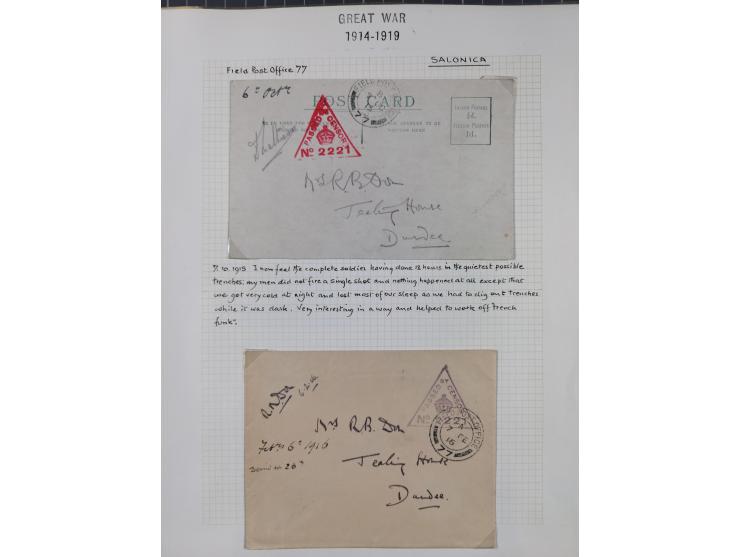 GREAT WAR
1914-1919
SALONICA
Field Post Office 77
6th Octr
POST CARD
PASSED BY CENSOR
No 2221
77
Mrs R.B. Don
Tealing House
Dundee
10. 1915 I now feel the complete soldier having done 12 hours in the quietest possible
trenches; my men did not fire a single shot and nothing happened at all except that
we got very cold at night and lost most of our sleep as we had to dig out trenches
while it was dark. Very interesting in a way and helped to work off "trench
funk".
PASSED BY CENSOR
No 221
OFFICE
77
Mrs R.B. Don
Feb 6th 1916
Tealing House
Dundee.